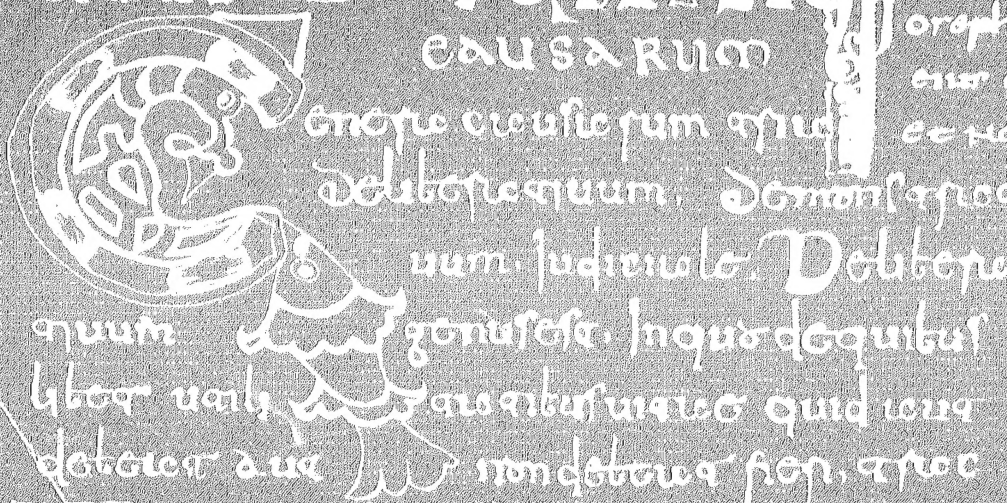 CAUSARUM
Genera causarum tria
deliberatiuum. demonstrati
uum. Iudiciale. Delibera
tiuum genus est. In quo de quibus
libet utilitatibus uitae quid aut
debeat aut non debeat fieri. trac